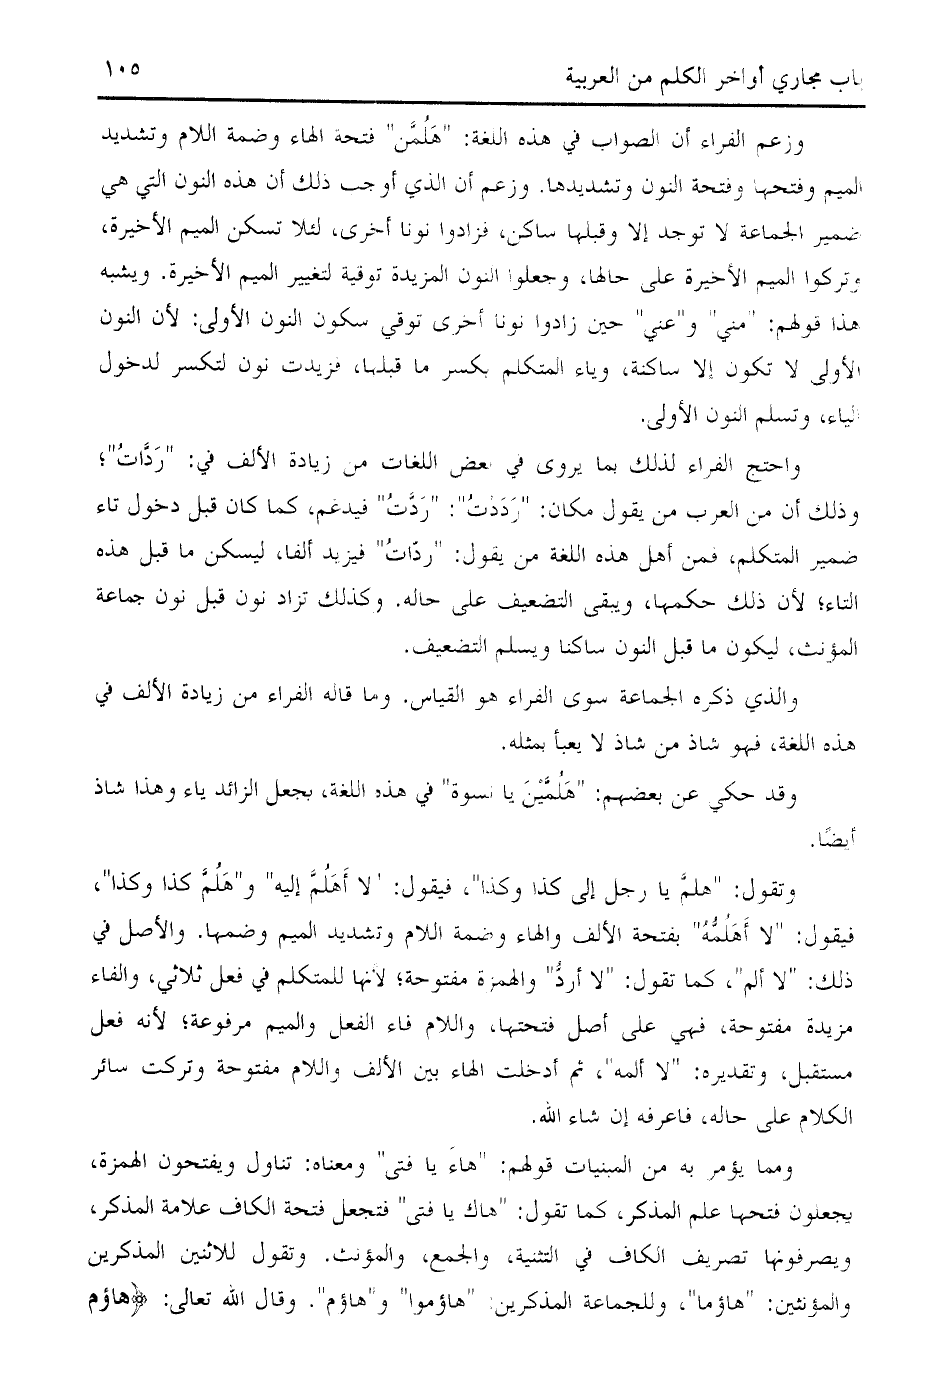 باب مجاري أواخر الكلم من العربية ١٠٥
وزعم الفراء أن الصواب في هذه اللغة: "هَلُمَّن" فتحة الهاء وضمة اللام وتشديد
الميم وفتحها وفتحة النون وتشديدها. وزعم أن الذي أوجب ذلك أن هذه النون التي هي
ضمير الجماعة لا توجد إلا وقبلها ساكن، فزادوا نونا أخرى، لئلا تسكن الميم الأخيرة،
وتركوا الميم الأخيرة على حالها، وجعلوا النون المزيدة توقية لتغيير الميم الأخيرة. ويشبه
هذا قولهم: "مني" و"عني" حين زادوا نونا أخرى توقي سكون النون الأولى: لأن النون
الأولى لا تكون إلا ساكنة، وياء المتكلم بكسر ما قبلها، فزيدت نون لتكسر لدخول
الياء، وتسلم النون الأولى.
واحتج الفراء لذلك بما يروى في بعض اللغات من زيادة الألف في: "رَدَّاتُ"؛
وذلك أن من العرب من يقول مكان: "رَدَدْتُ": "رَدَّتُ" فيدغم، كما كان قبل دخول تاء
ضمير المتكلم، فمن أهل هذه اللغة من يقول: "ردّاتُ" فيزيد ألفا، ليسكن ما قبل هذه
التاء؛ لأن ذلك حكمها، ويبقى التضعيف على حاله. وكذلك تزاد نون قبل نون جماعة
المؤنث، ليكون ما قبل النون ساكنا ويسلم التضعيف.
والذي ذكره الجماعة سوى الفراء هو القياس. وما قاله الفراء من زيادة الألف في
هذه اللغة، فهو شاذ من شاذ لا يعبأ بمثله.
وقد حكي عن بعضهم: "هَلُمَّيْنَ يا نسوة" في هذه اللغة، بجعل الزائد ياء وهذا شاذ
أيضًا.
وتقول: "هلمَّ يا رجل إلى كذا وكذا"، فيقول: "لا أَهَلُمَّ إليه" و"هَلُمَّ كذا وكذا"،
فيقول: "لا أَهَلُمُّهُ" بفتحة الألف والهاء وضمة اللام وتشديد الميم وضمها. والأصل في
ذلك: "لا ألم"، كما تقول: "لا أردُّ" والهمزة مفتوحة؛ لأنها للمتكلم في فعل ثلاثي، والفاء
مزيدة مفتوحة، فهي على أصل فتحتها، واللام فاء الفعل والميم مرفوعة؛ لأنه فعل
مستقبل، وتقديره: "لا ألمه"، ثم أدخلت الهاء بين الألف واللام مفتوحة وتركت سائر
الكلام على حاله، فاعرفه إن شاء الله.
ومما يؤمر به من المبنيات قولهم: "هاءَ يا فتى" ومعناه: تناول ويفتحون الهمزة،
يجعلون فتحها علم المذكر، كما تقول: "هاك يا فتى" فتجعل فتحة الكاف علامة المذكر،
ويصرفونها تصريف الكاف في التثنية، والجمع، والمؤنث. وتقول للاثنين المذكرين
والمؤنثين: "هاؤما"، وللجماعة المذكرين: "هاؤموا" و"هاؤم". وقال الله تعالى: ﴿هاؤم